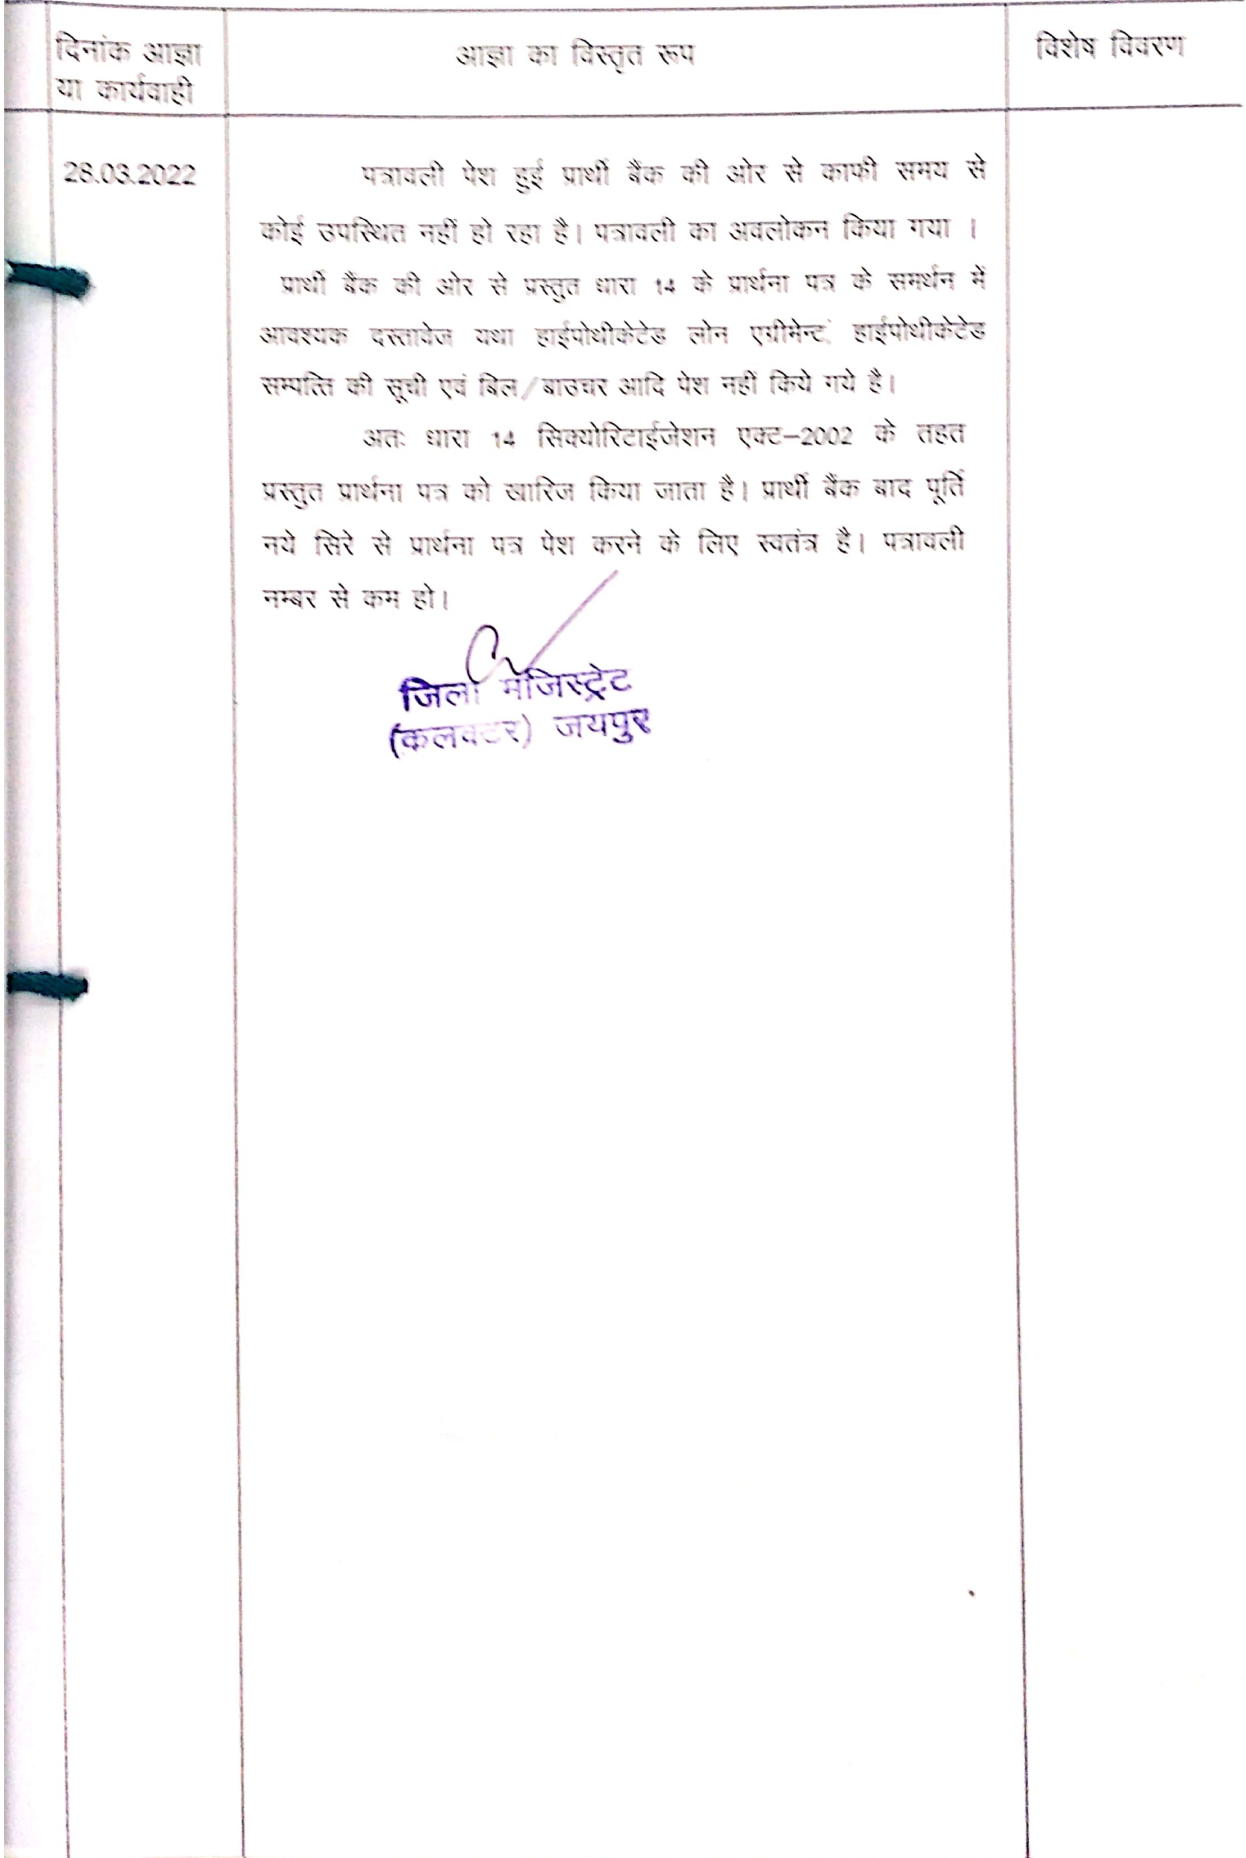 दिनांक आज्ञा
या कार्यवाही
आज्ञा का विस्तृत रूप
विशेष विवरण
28.03.2022
पत्रावली पेश हुई प्रार्थी बैंक की ओर से काफी समय से
कोई उपस्थित नहीं हो रहा है। पत्रावली का अवलोकन किया गया ।
प्रार्थी बैंक की ओर से प्रस्तुत धारा 14 के प्रार्थना पत्र के समर्थन में
आवश्यक दस्तावेज यथा हाईपोथीकेटेड लोन एग्रीमेन्ट, हाईपोथीकेटेड
सम्पत्ति की सूची एवं बिल/बाउचर आदि पेश नहीं किये गये है।
अतः धारा 14 सिक्योरिटाईजेशन एक्ट–2002 के तहत
प्रस्तुत प्रार्थना पत्र को खारिज किया जाता है। प्रार्थी बैंक बाद पूर्ति
नये सिरे से प्रार्थना पत्र पेश करने के लिए स्वतंत्र है। पत्रावली
नम्बर से कम हो।
जिला मजिस्ट्रेट
(कलक्टर) जयपुर